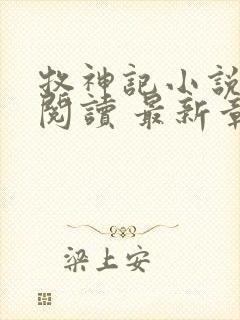 牧神記小說
閱讀 最新章
梁上安